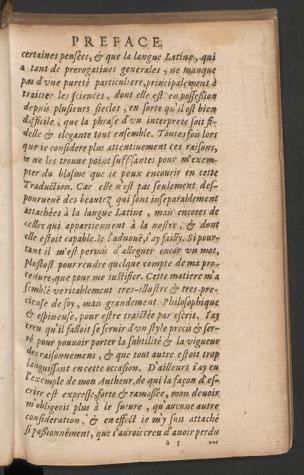 PREFACE.
certaines pensées, & que la langue Latine, qui
a tant de prerogatiues generales, ne manque
pas d'vne pureté particuliere, principalement à
traitter les sciences, dont elle est en possession
depuis plusieurs siecles, en sorte qu'il est bien
difficile, que la phrase d'vn interprete soit fi-
delle & elegante tout ensemble. Toutesfois lors
que ie considere plus attentiuement ces raisons,
ie ne les trouue point suffisantes pour m'exem-
pter du blasme que ie peux encourir en cette
Traduction. Car elle n'est pas seulement des-
pourueuë des beautez qui sont inseparablement
attachées à la langue Latine, mais encores de
celles qui appartiennent à la nostre, & dont
elle estoit capable. Ie l'aduouë, i'ay failly. Si pour-
tant il m'est permis d'alleguer encor vn mot,
plustost pour rendre quelque compte de ma pro-
cedure, que pour me iustifier. Cette matiere m'a
semblé veritablement tres-illustre & tres-pre-
cieuse de soy, mais grandement Philosophique
& espineuse, pour estre traictée par escrit. I'ay
creu qu'il falloit se seruir d'vn style precis & ser-
ré pour pouuoir porter la subtilité & la vigueur
des raisonnemens, & que tout autre estoit trop
languissant en cette occasion. D'ailleurs i'ay eu
l'exemple de mon Autheur, de qui la façon d'es-
crire est expresse, forte & ramassée, mon deuoir
m'obligeoit plus à le suiure, qu'aucune autre
consideration, & en effect ie m'y suis attaché
si passionnément, que i'aurois creu d'auoir perdu
à 5